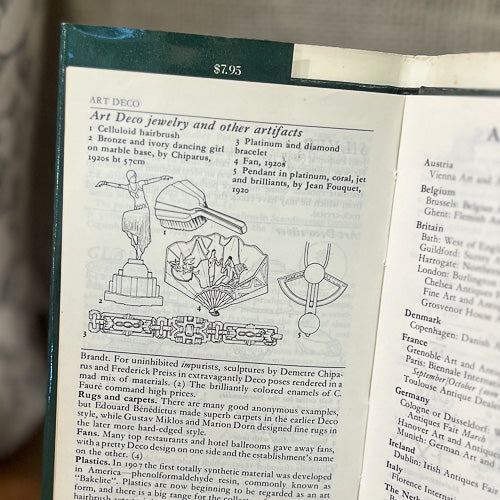 $7.95
ART DECO
Art Deco jewelry and other artifacts
1 Celluloid hairbrush
2 Bronze and ivory dancing girl
on marble base, by Chiparus,
1920s ht 57cm
3 Platinum and diamond
bracelet
4 Fan, 1920s
5 Pendant in platinum, coral, jet
and brilliants, by Jean Fouquet,
1920
1
2
4
3
5
Brandt. For uninhibited impurists, sculptures by Demetre Chipa-
rus and Frederick Preiss in extravagantly Deco poses rendered in a
mad mix of materials. (2) The brilliantly colored enamels of C.
Fauré command high prices.
Rugs and carpets. There are many good anonymous examples,
but Edouard Bénédictus made superb carpets in the earlier Deco
style, while Gustav Miklos and Marion Dorn designed fine rugs in
the later more hard-edged style.
Fans. Many top restaurants and hotel ballrooms gave away fans,
with a pretty Deco design on one side and the establishment's name
on the other. (4)
Plastics. In 1907 the first totally synthetic material was developed
in America—phenolformaldehyde resin, commonly known as
"Bakelite". Plastics are now beginning to be regarded as an art
form, and there is a big range for the
hairbrush
A
Austria
Vienna Art and
Belgium
Brussels: Belgian
Ghent: Flemish
Britain
Bath: West of Eng
Guildford: Surrey
Harrogate: Northern
London: Burlington
Chelsea Antiques
Fine Art and Ant
Grosvenor House
Denmark
Copenhagen: Danish
France
Grenoble Art and An
Paris: Biennale Intern
September/October
Toulouse Antique Deal
Germany
Cologne or Dusseldorf:
Antiques Fair March
Hanover Art and Antiqu
Munich: German Art and
Ireland
Dublin: Irish Antiques Fair
Italy
Florence Internat
The Netherl